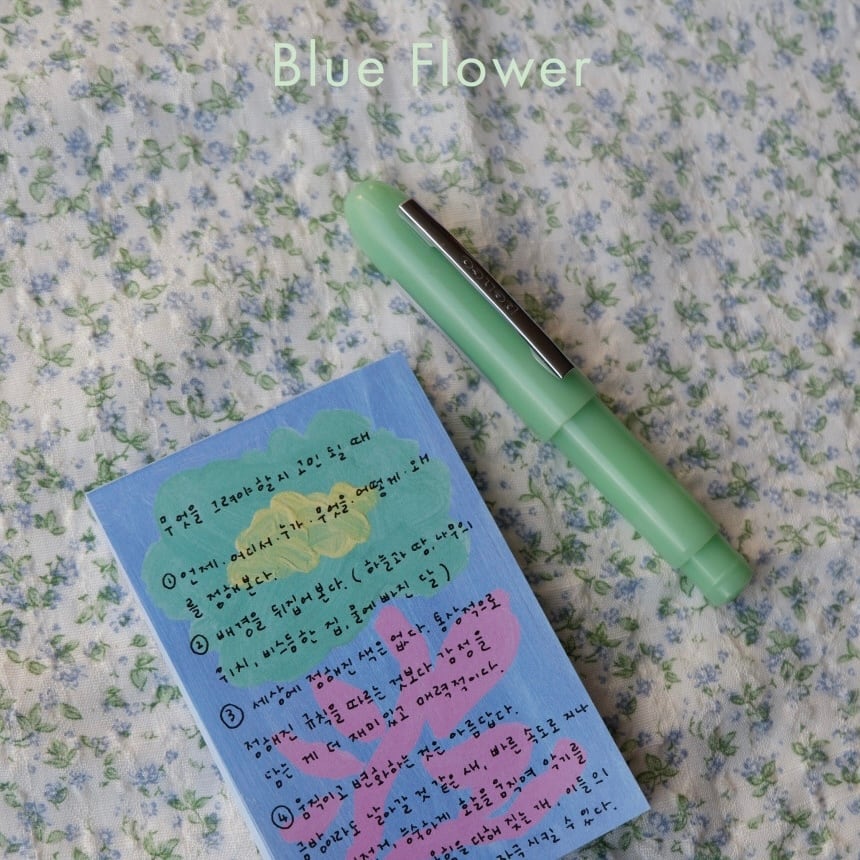 Blue Flower
무엇을 그려야할지 고민 될 때
① 언제. 어디서. 누가. 무엇을. 어떻게. 왜
를 정해본다.
② 배경을 뒤집어본다. (하늘과 땅, 나무의
위치, 비스듬한 집, 물에 빠진 달)
③ 세상에 정해진 색은 없다. 통상적으로
정해진 규칙을 따르는 것보다 감정을
담는 게 더 재미있고 매력적이다.
④ 움직이고 변화하는 것은 아름답다.
금방이라도 날아갈 것 같은 새, 빠른 속도로 지나
능숙하게 호흡을 움직여 악기를
힘을 다해 짖는 개, 이들의
자극 시킬 수 있다.